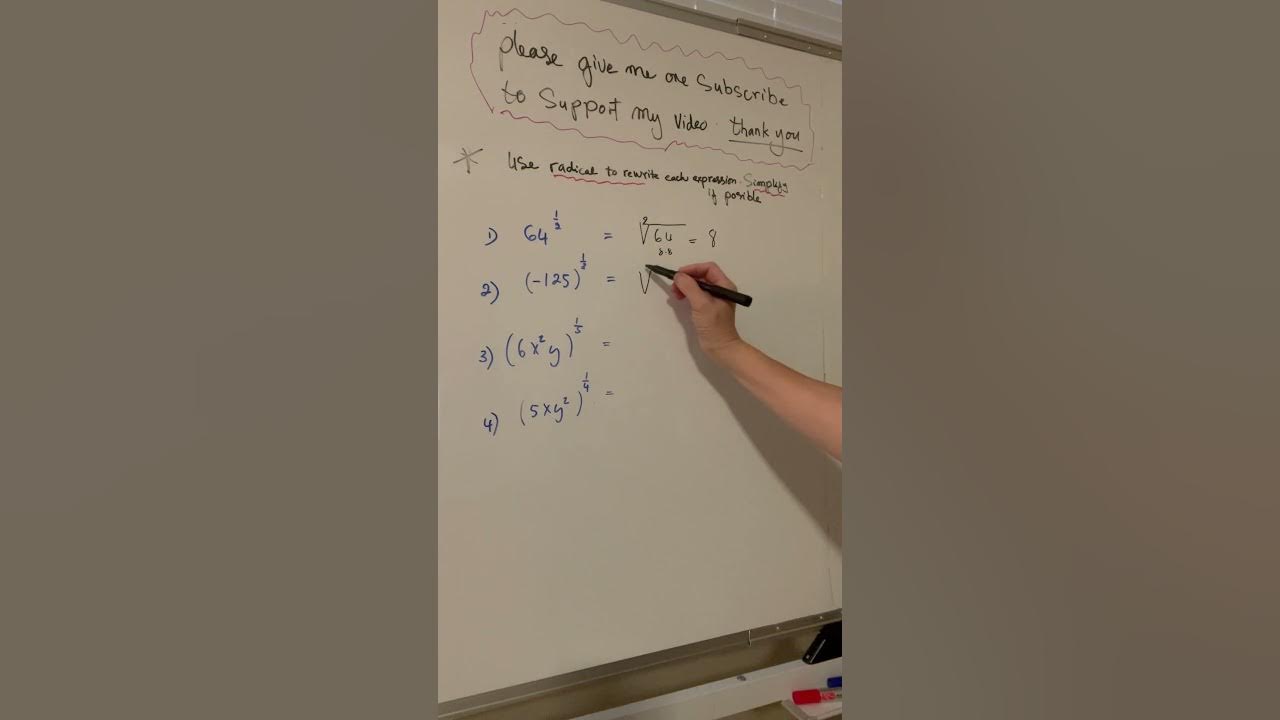 please give me one Subscribe
to Support my video. thank you
* Use radical to rewrite each expression. Simplify
if posible
1) 64^(1/2) = ²√64 = 8
8·8
2) (-125) = √
3) (6x²y) =
4) (5xy²)^(1/4) =